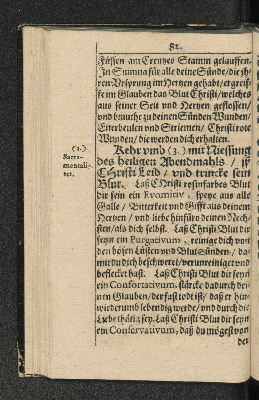 82.
Füssen am Creutzes Stamm gelauffen.
In Summa für alle deine Sünde/ die jh-
ren Ursprung im Hertzen gehabt/ ergreif-
fe im Glauben das Blut Christi/ welches
aus seiner Seit und Hertzen geflossen/
und brauche zu deinen Sünden Wunden/
Eiterbeulen und Striemen/ Christi rote
Wunden/ die werden dich erhalten.
Kehr vnd (3.) mit Niessung
des heiligen Abendmahls/ iß
Christi Leib/ vnd trincke sein
Blut. Laß Christi rosinfarbes Blut
dir sein ein Evomitiv, speye aus alle
Galle/ Bitterkeit und Gifft aus deinem
Hertzen/ und liebe hinfüro deinen Nech-
sten/ als dich selbst. Laß Christi Blut dir
seyn ein Purgativum, reinige dich von
den bösen Lüsten und Blut Sünden/ da-
mit du dich beschweret/ verunreiniget und
beflecket hast. Laß Christi Blut dir seyn
ein Confortativum, stärcke dadurch dei-
nen Glauben/ der fast tod ist/ daß er hin-
wiederumb lebendig werde/ und durch die
Liebe thätig sey. Laß Christi Blut dir seyn
ein Conservativum, daß du mögest von
der
(3.)
Sacra-
mentali-
ter.